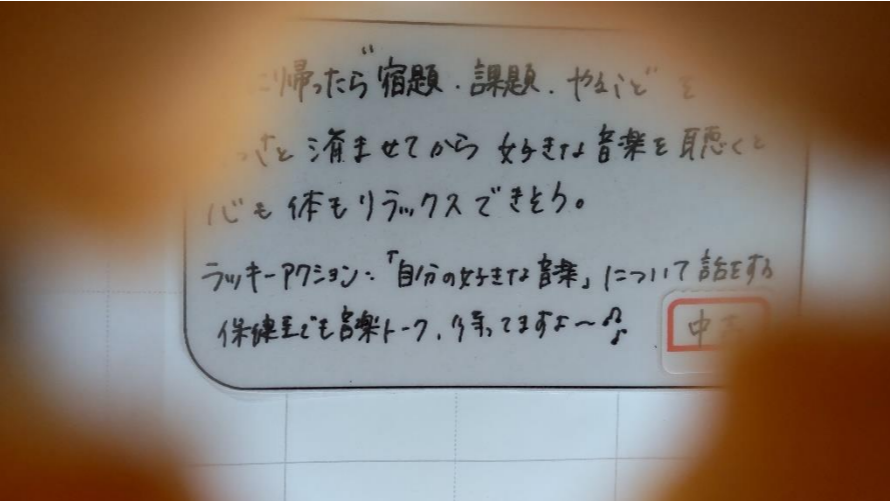 帰ったら宿題、課題、やることを
さと済ませてから好きな音楽を聴くと
心も体もリラックスできそう。
ラッキーアクション:「自分の好きな音楽」について話をする
保健室でも音楽トーク、待ってますよ〜♫♪
中